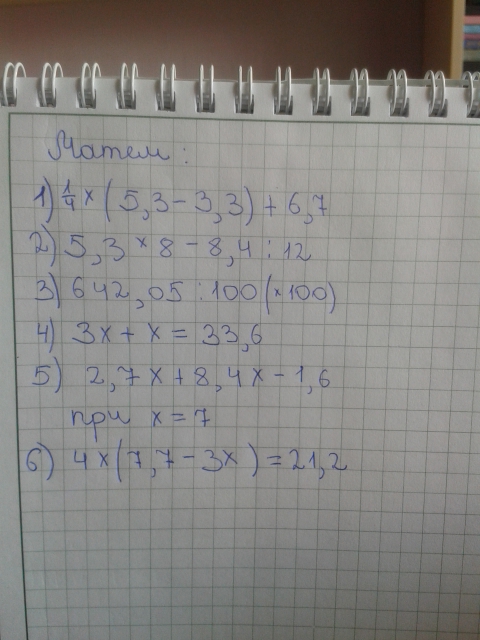 Матем:
1) 1/4 × (5,3 - 3,3) + 6,7
2) 5,3 × 8 - 8,4 : 12
3) 642,05 : 100 (×100)
4) 3x + x = 33,6
5) 2,7x + 8,4x - 1,6
при x = 7
6) 4 × (7,7 - 3x) = 21,2